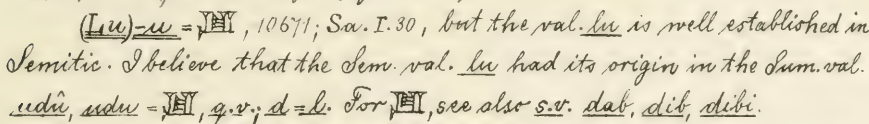 (Lu)-u = 𒇻, 10671; Sa. I. 30, but the val. lu is well established in
Semitic. I believe that the Sem. val. lu had its origin in the Sum. val.
udû, udu = 𒇻, q.v.; d = l. For 𒇻, see also s.v. dab, dib, dibi.